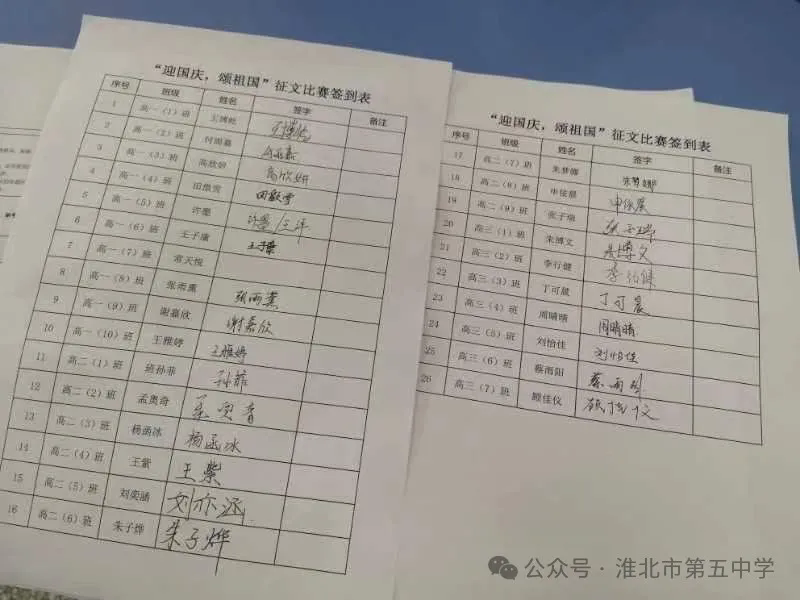 “迎国庆，颂祖国”征文比赛签到表
序号 班级 姓名 签字 备注
1 高一（1）班 王博屹 王博屹
2 高一（2）班 付雨嘉
3 高一（3）班 高欣妍 高欣妍
4 高一（4）班 田歆雯 田歆雯
5 高一（5）班 许愿
6 高一（6）班 王子康
7 高一（7）班 常天悦
8 高一（8）班 张雨薰 张雨薰
9 高一（9）班 谢嘉欣 谢嘉欣
10 高一（10）班 王雅婷 王雅婷
11 高二（1）班 班孙菲 孙菲
12 高二（2）班 孟奥奇 孟奥奇
13 高二（3）班 杨函冰 杨函冰
14 高二（4）班 王紫 王紫
15 高二（5）班 刘奕涵 刘亦涵
16 高二（6）班 朱子烨 朱子烨
“迎国庆，颂祖国”征文比赛签到表
序号 班级 姓名 签字 备注
17 高二（7）班 朱梦娜 朱梦娜
18 高二（8）班 申佳晨 申佳晨
19 高二（9）班 张子瑞 张子瑞
20 高三（1）班 朱博文 朱博文
21 高三（2）班 李行健 李行健
22 高三（3）班 丁可晨 丁可晨
23 高三（4）班 周晴晴 周晴晴
24 高三（5）班 刘怡佳 刘怡佳
25 高三（6）班 蔡雨阳 蔡雨阳
26 高三（7）班 顾佳仪
公众号·淮北市第五中学